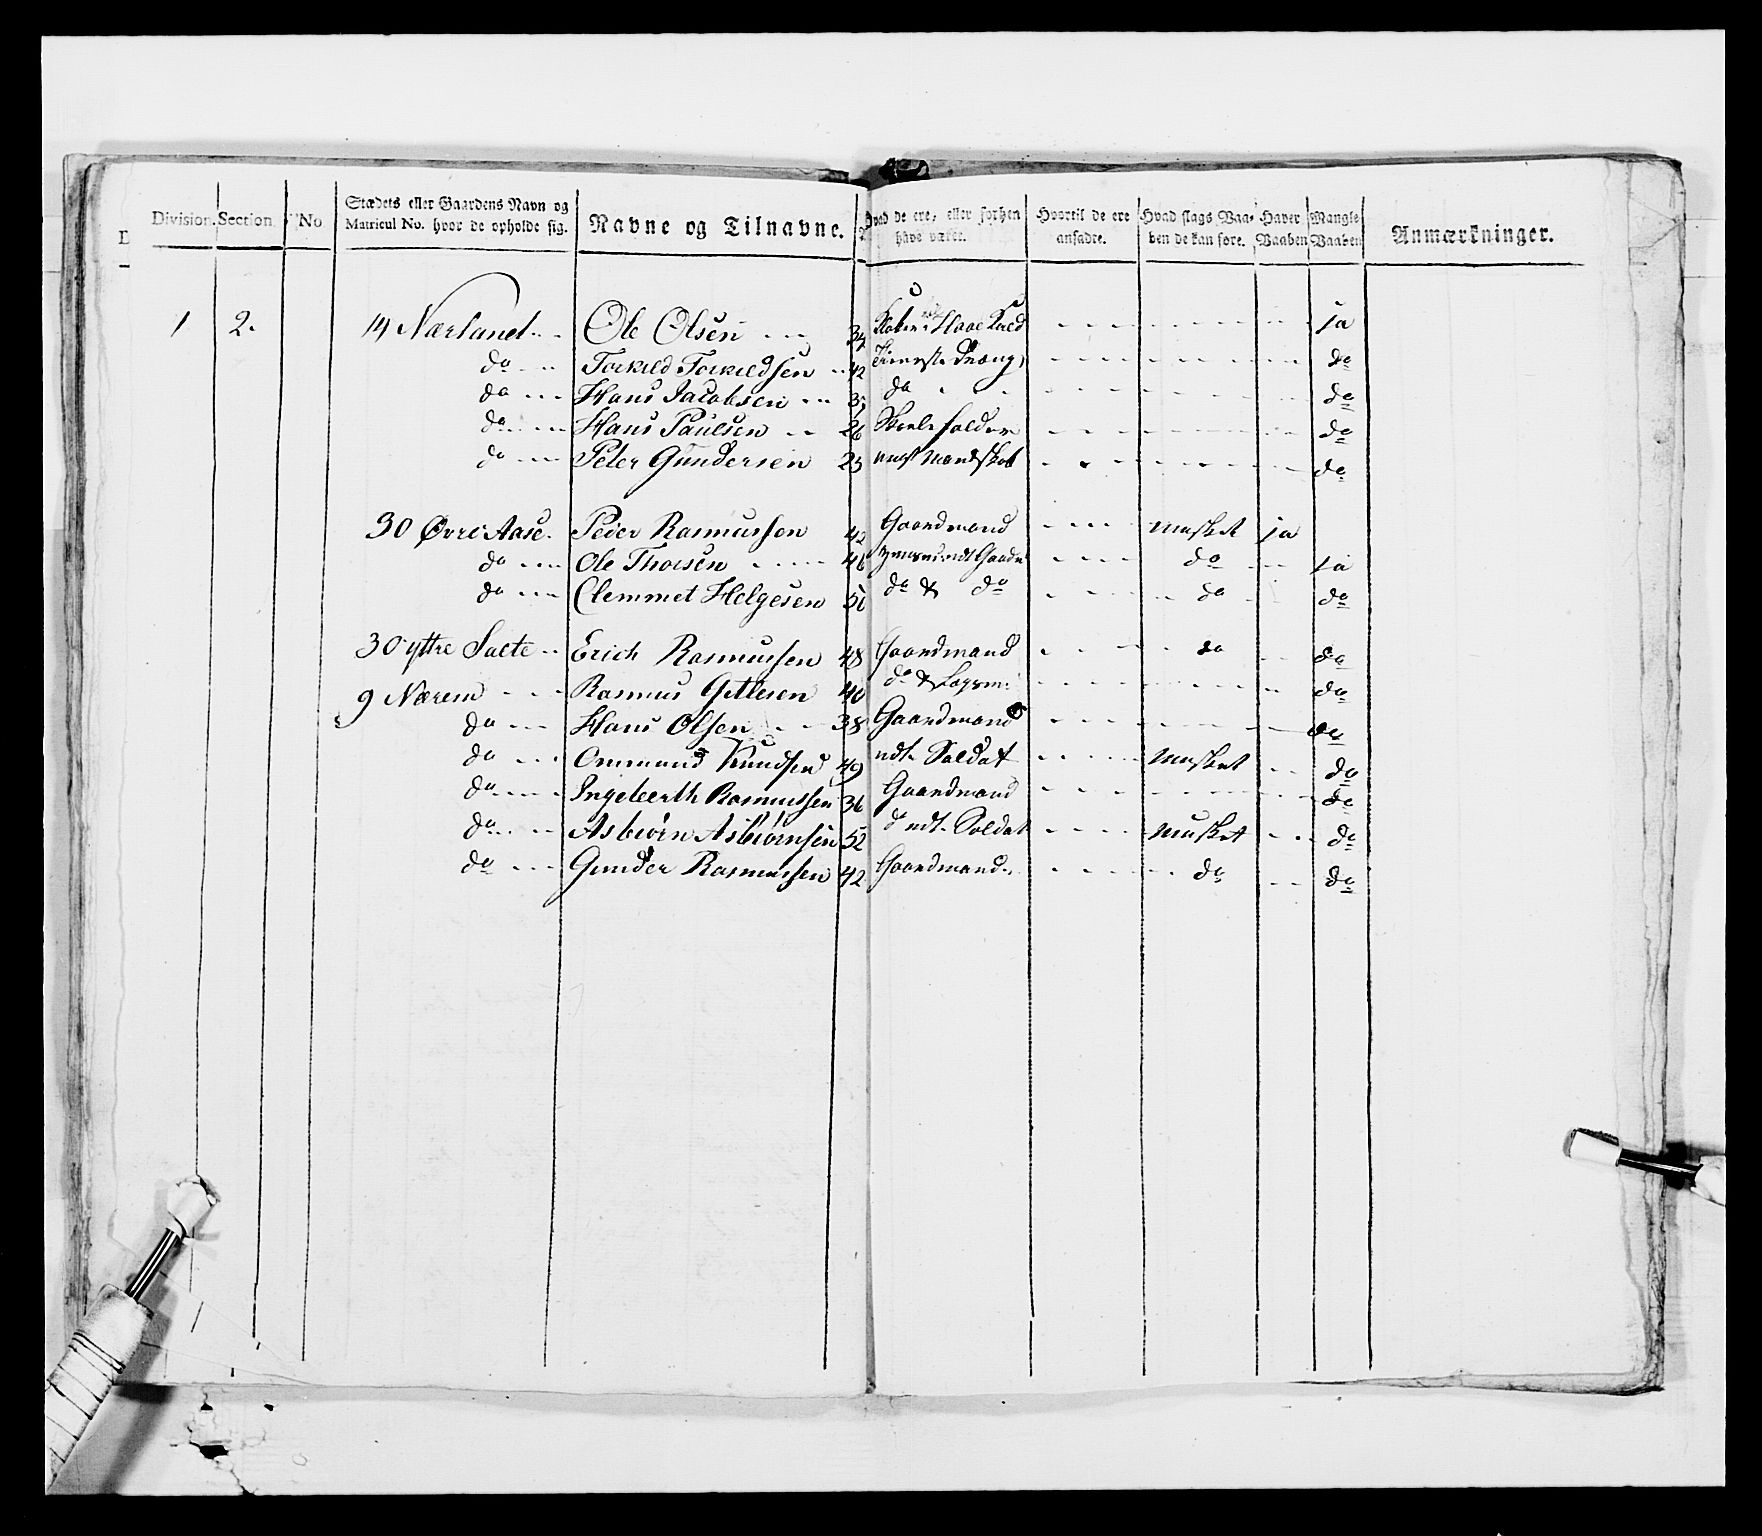 Division. Section. No Stædets eller Gaardens Navn og Matricul No. hvor de opholde sig. Navne og Tilnavne. Hvad de ere, eller forhen have været. Hvortil de ere ansadte. Hvad slags Vaaben de kan føre. Haver Vaaben Mangle Vaaben Anmærkninger.
1 2. 14 Nærland Ole Olsen 34 ja
do Torkild Torkildsen 42 Tieneste Dræng do
do Hans Jacobsen do do
do Hans Paulsen 26 Skoeleholder do
do Peter Gundersen 23 Mandskab do
30 Øvre Aase. Peder Rasmussen 42 Gaardmand Musket ja
do Ole Thorsen 46 do ja
do Clemmet Helgesen 50 do & do do do
30 ÿttre Salte Erich Rasmussen 48 Gaardmand do do
9 Nærem Rasmus Gitlesen 40 do & do
do Hans Olsen 38 Gaardmand do
do Ommund Knudsen 49 udt. Soldat Musket do
do Ingebærth Rasmussen 36 Gaardmand do
do Asbiørn Asbiørnsen 52 udt. Soldat Musket do
do Gunder Rasmussen 42 Gaardmand. do do